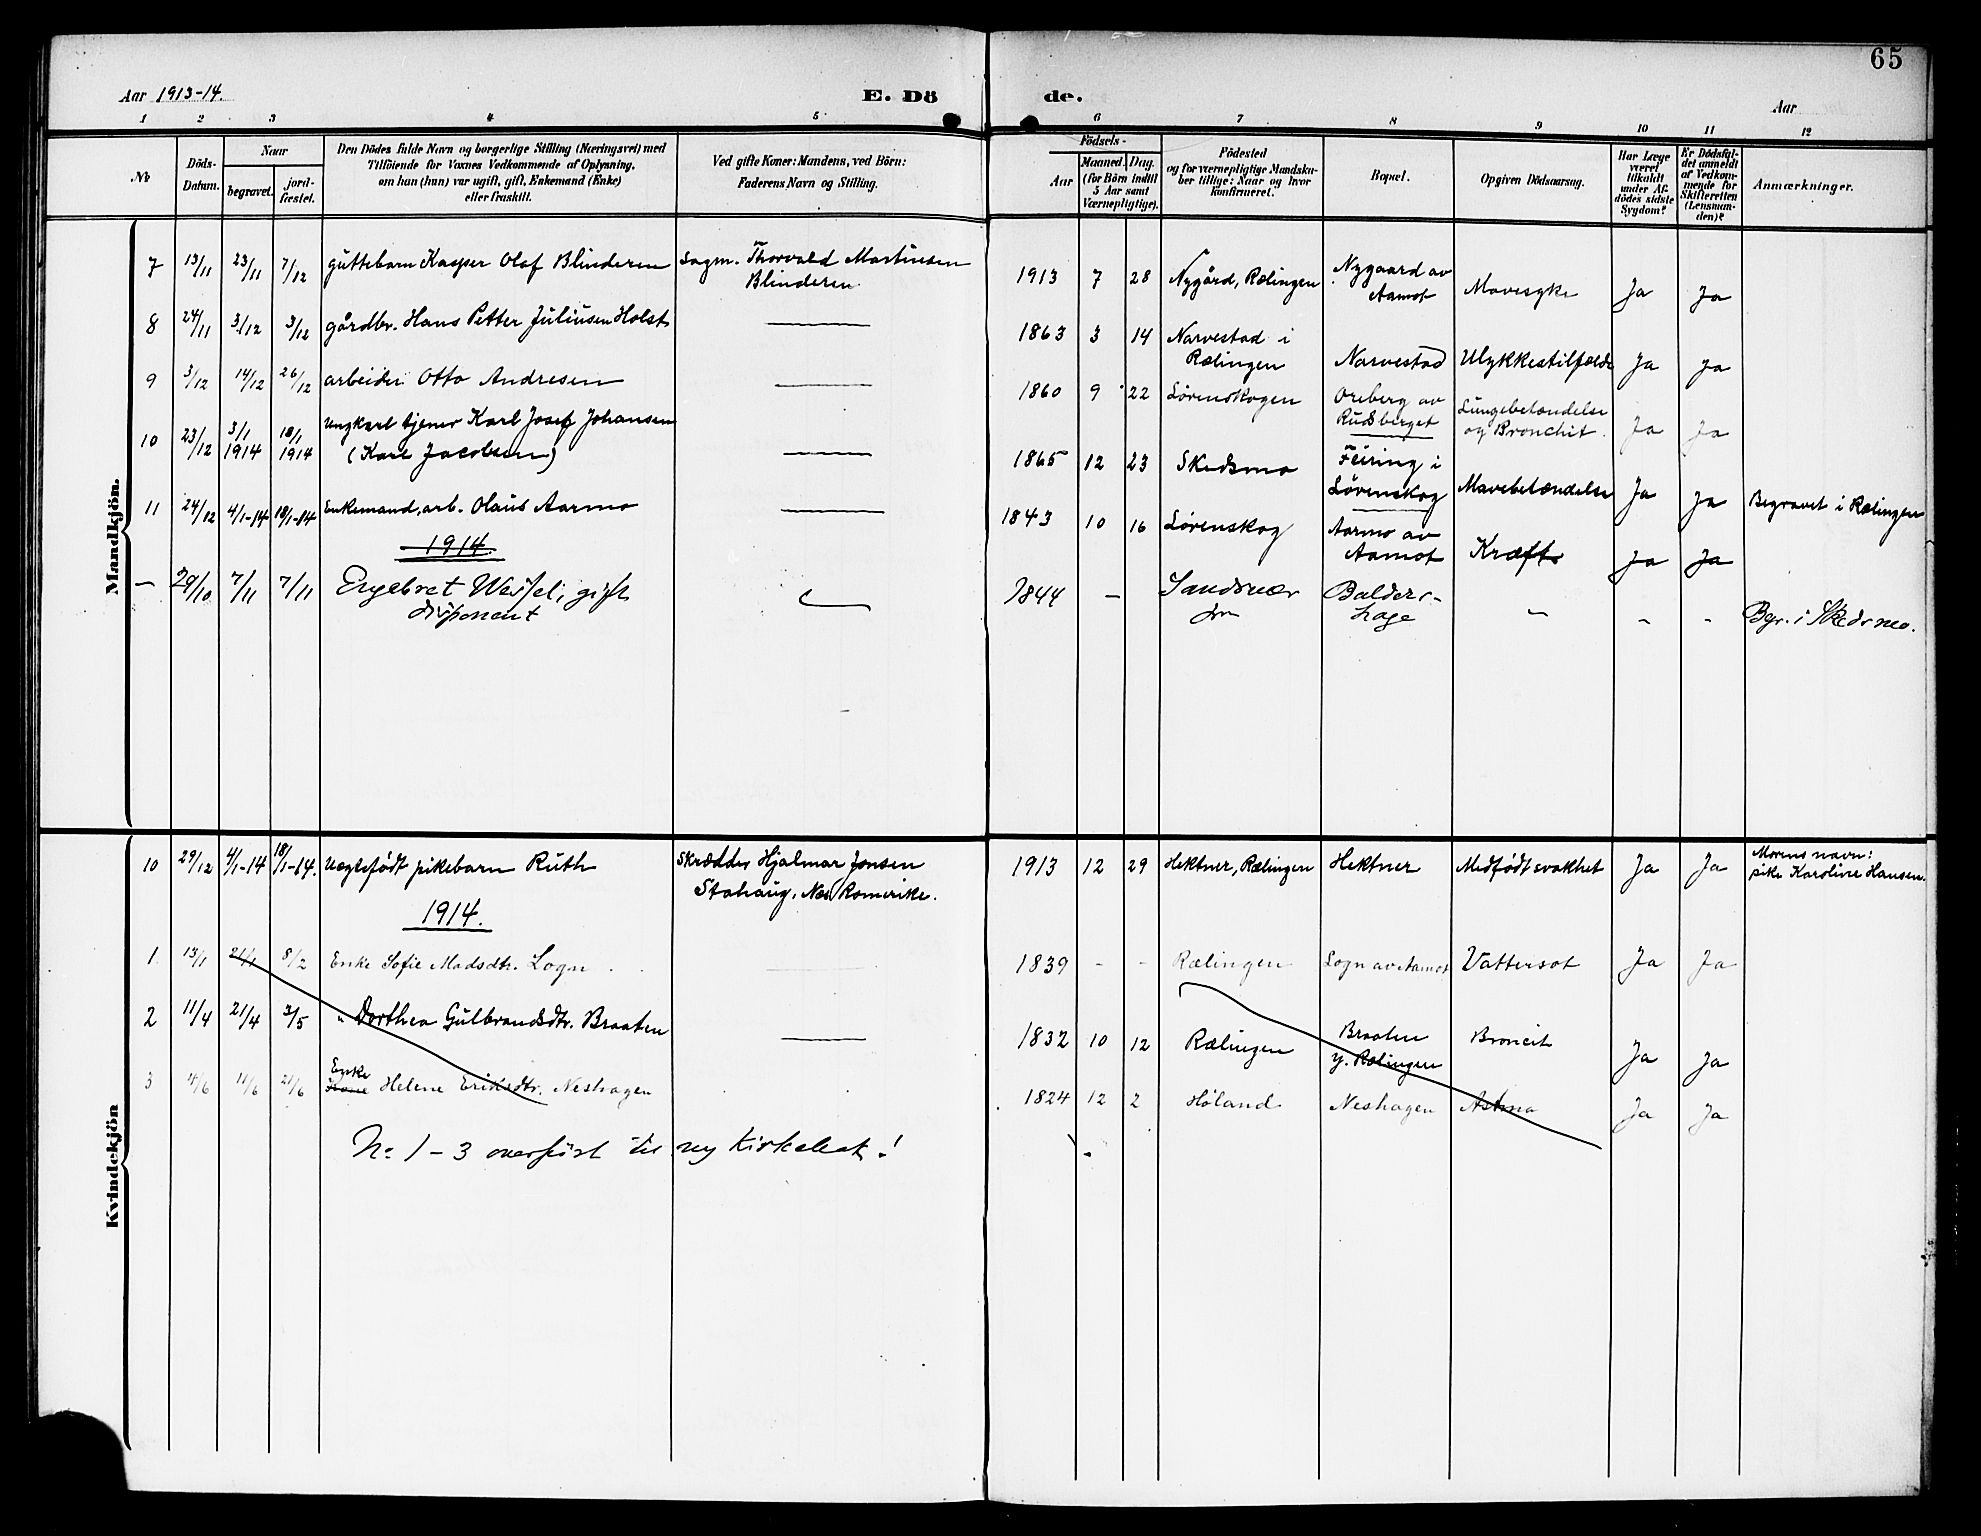 65
Aar 1913-14.
E. Dö
de.
Aar
1 2 3 4 5 6 7 8 9 10 11 12
№
Döds-
Datum.
Naar
begravet.
jord-
fæstet.
Den Dödes fulde Navn og borgerlige Stilling (Næringsvei) med
Tilföiende for Voxnes Vedkommende af Oplysning,
om han (hun) var ugift, gift, Enkemand (Enke)
eller fraskilt.
Ved gifte Koner: Mandens, ved Börn:
Faderens Navn og Stilling.
Födsels-
Aar
Maaned. Dag.
(for Börn indtil
5 Aar samt
Værnepligtige).
Födested
og for værnepligtige Mandska-
ber tillige: Naar og hvor
konfirmeret.
Bopæl.
Opgiven Dödsaarsag.
Har Læge
været
tilkaldt
under Af-
dödes sidste
Sygdom?
Er Dödsfal-
det anmeldt
af Vedkom-
mende for
Skifteretten
(Lensman-
den)?
Anmærkninger.
Mandkjön.
7 13/11 23/11 7/12 guttebarn Kasper Olaf Blinderen sagm. Thorvald Martinsen
Blinderen.
1913 7 28 Nygård, Rælingen Nygaard av
Aamot Mavesyke Ja Ja
8 24/11 3/12 3/12 gårdbr. Hans Petter Juliusen Holst
1863 3 14 Narvestad i
Rælingen Narvestad Ulykkestilfælde Ja Ja
9 3/12 14/12 26/12 arbeider Otto Andresen
1860 9 22 Lørenskogen Oreberg av
Rudsberget Lungebetændelse
og Bronchit. Ja Ja
10 23/12 3/1 1914 18/1 1914 ungkarl tjener Karl Josef Johansen
(Karl Jacobsen)
1865 12 23 Skedsmo Feiring i
Lørenskog Mavebetændelse Ja Ja Begravet i Rælingen
11 24/12 4/1-14 18/1-14 Enkemand, arb. Olaus Aarmo
1843 10 16 Lørenskog Aarmo av
Aamot Kræft Ja Ja
1914.
— 29/10 7/11 7/11 Engebret Wessel, gift
disponent
1844 — Sandsvær Balders-
hage - - Begr. i Skedsmo.
Kvindekjön
10 29/12 4/1-14 18/1-14. uegtefødt pikebarn Ruth Skrædder Hjalmar Jonsen
Stahaug, Nes Romerike.
1913 12 29 Hektner, Rælingen Hektner Medfødt svakhet Ja Ja Morens navn:
pike Karoline Hansen.
1914.
1. 13/1 21/1 8/2 Enke Sofie Madsdtr. Logn
1839 - - Rælingen Logn av Aamot Vattersot Ja Ja
2 11/4 21/4 3/5 " Dorthea Gulbrandsdtr. Braaten
1832 10 12 Rælingen Braaten
y. Rælingen Broncit Ja Ja
3 4/6 11/6 21/6 Enke
Kone Helene Eriksdtr. Neshagen
1824 12 2 Høland Neshagen Astma Ja Ja
No 1-3 overført til ny Kirkebok.!